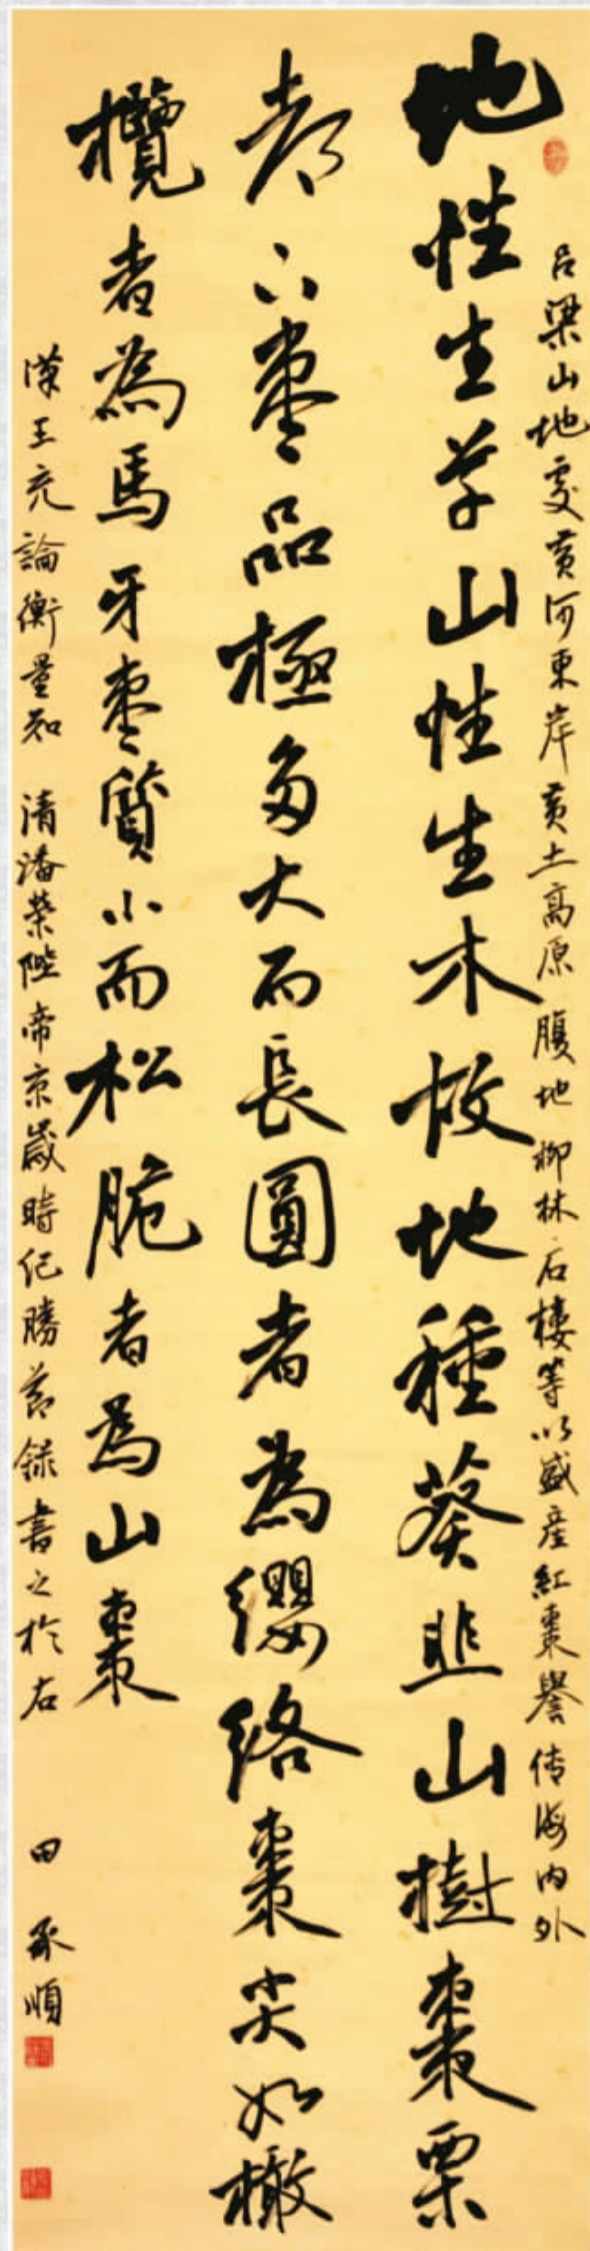 吕梁山地處黄河東岸黄土高原腹地柳林石樓等以盛産紅棗譽传海内外
地性生草山性生木故地種葵韭山樹棗栗
都下棗品極多大而長圓者為纓絡棗尖如橄
欖者為馬牙棗質小而松脆者為山棗
漢王充論衡量知 清潘榮陛帝京歲時纪勝節録書之於右
田承順